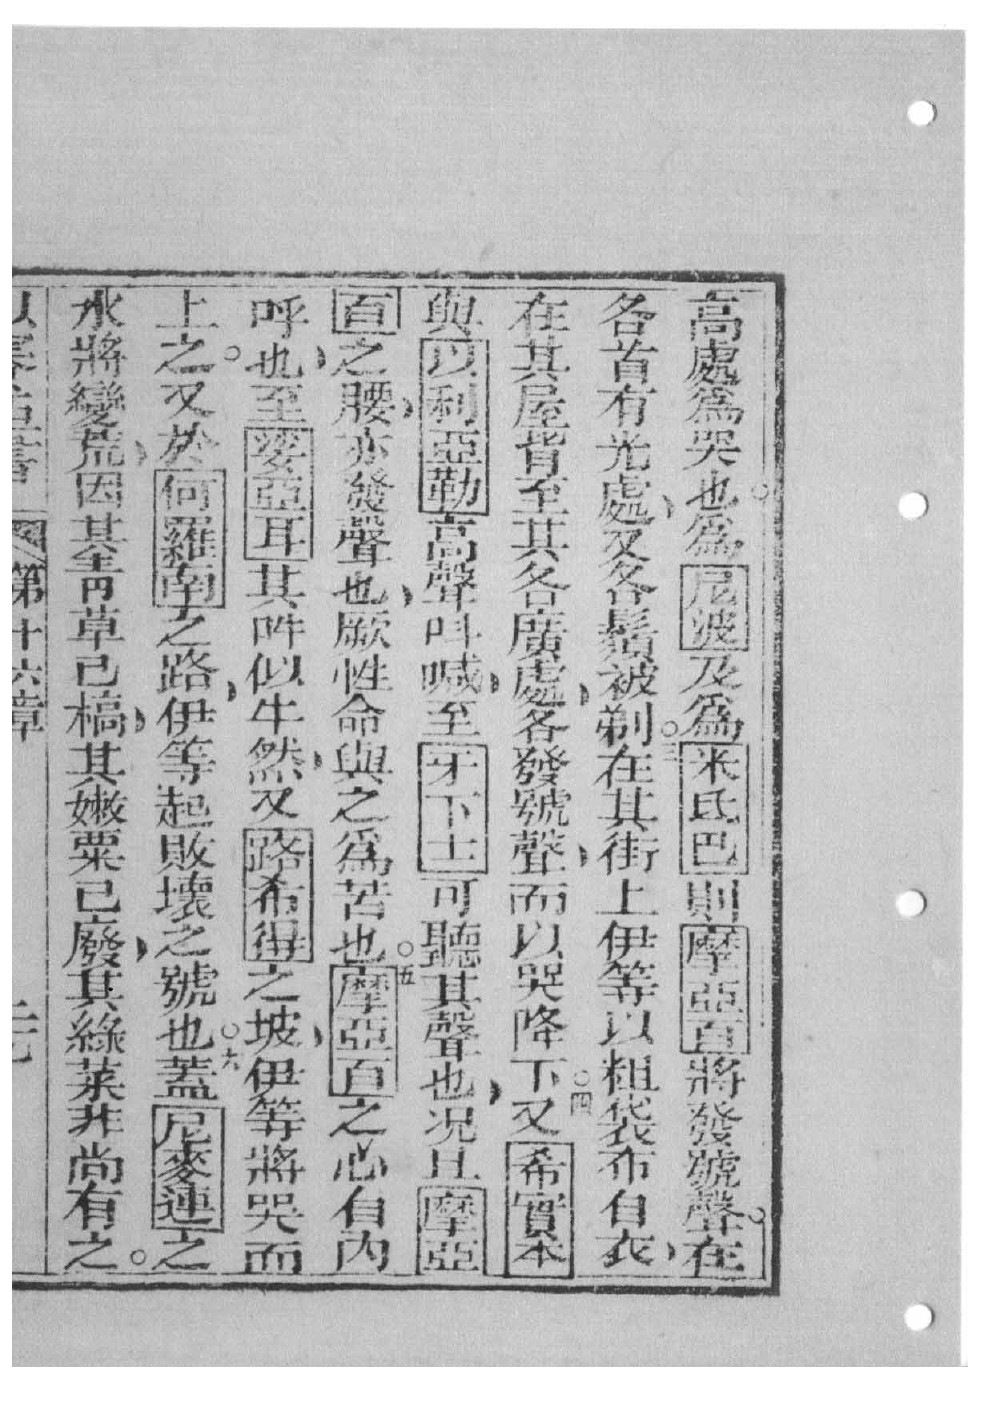 高處爲哭也。爲尼波及爲米氐巴則摩亞百將發號聲。在
各首有光處、又各鬚被剃。三在其街上伊等以粗袋布自衣、
在其屋背至其各廣處、各發號聲、而以哭降下。四又希實本
與以利亞勒高聲呌喊、至牙下士可聽其聲也、況且摩亞
百之腰、亦發聲也、厥性命與之爲苦也。五摩亞百之心自內
呼也、至娑亞耳其吽似牛然、又路希得之坡、伊等將哭而
上之。又於何羅南之路、伊等起敗壞之號也。六蓋尼麥連之
水將變荒、因其靑草已槁、其嫩粟已廢、其綠菜非尚有之。
以賽亞書 第十六章